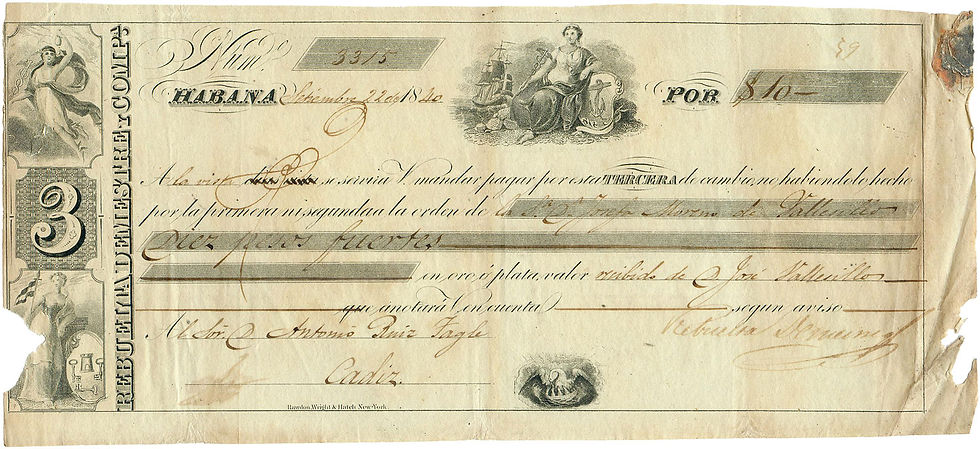 59
Núm. 3315
HABANA Setiembre 22 de 1840. POR $10—
A la vista se servirá V. mandar pagar por esta TERCERA de cambio, no habiendolo hecho
por la primera ni segunda a la orden de la Sª Dª Josefa Moreno de Vallesillo
Diez pesos fuertes
en oro, ó plata, valor recibido de D José Vallesillo
que anotará V. en cuenta segun aviso
Al Sor. D Antonio Ruiz Tagle
Cadiz.
Rawdon, Wright & Hatch New-York.
REBUELTA DEMESTRE Y COMP.
3